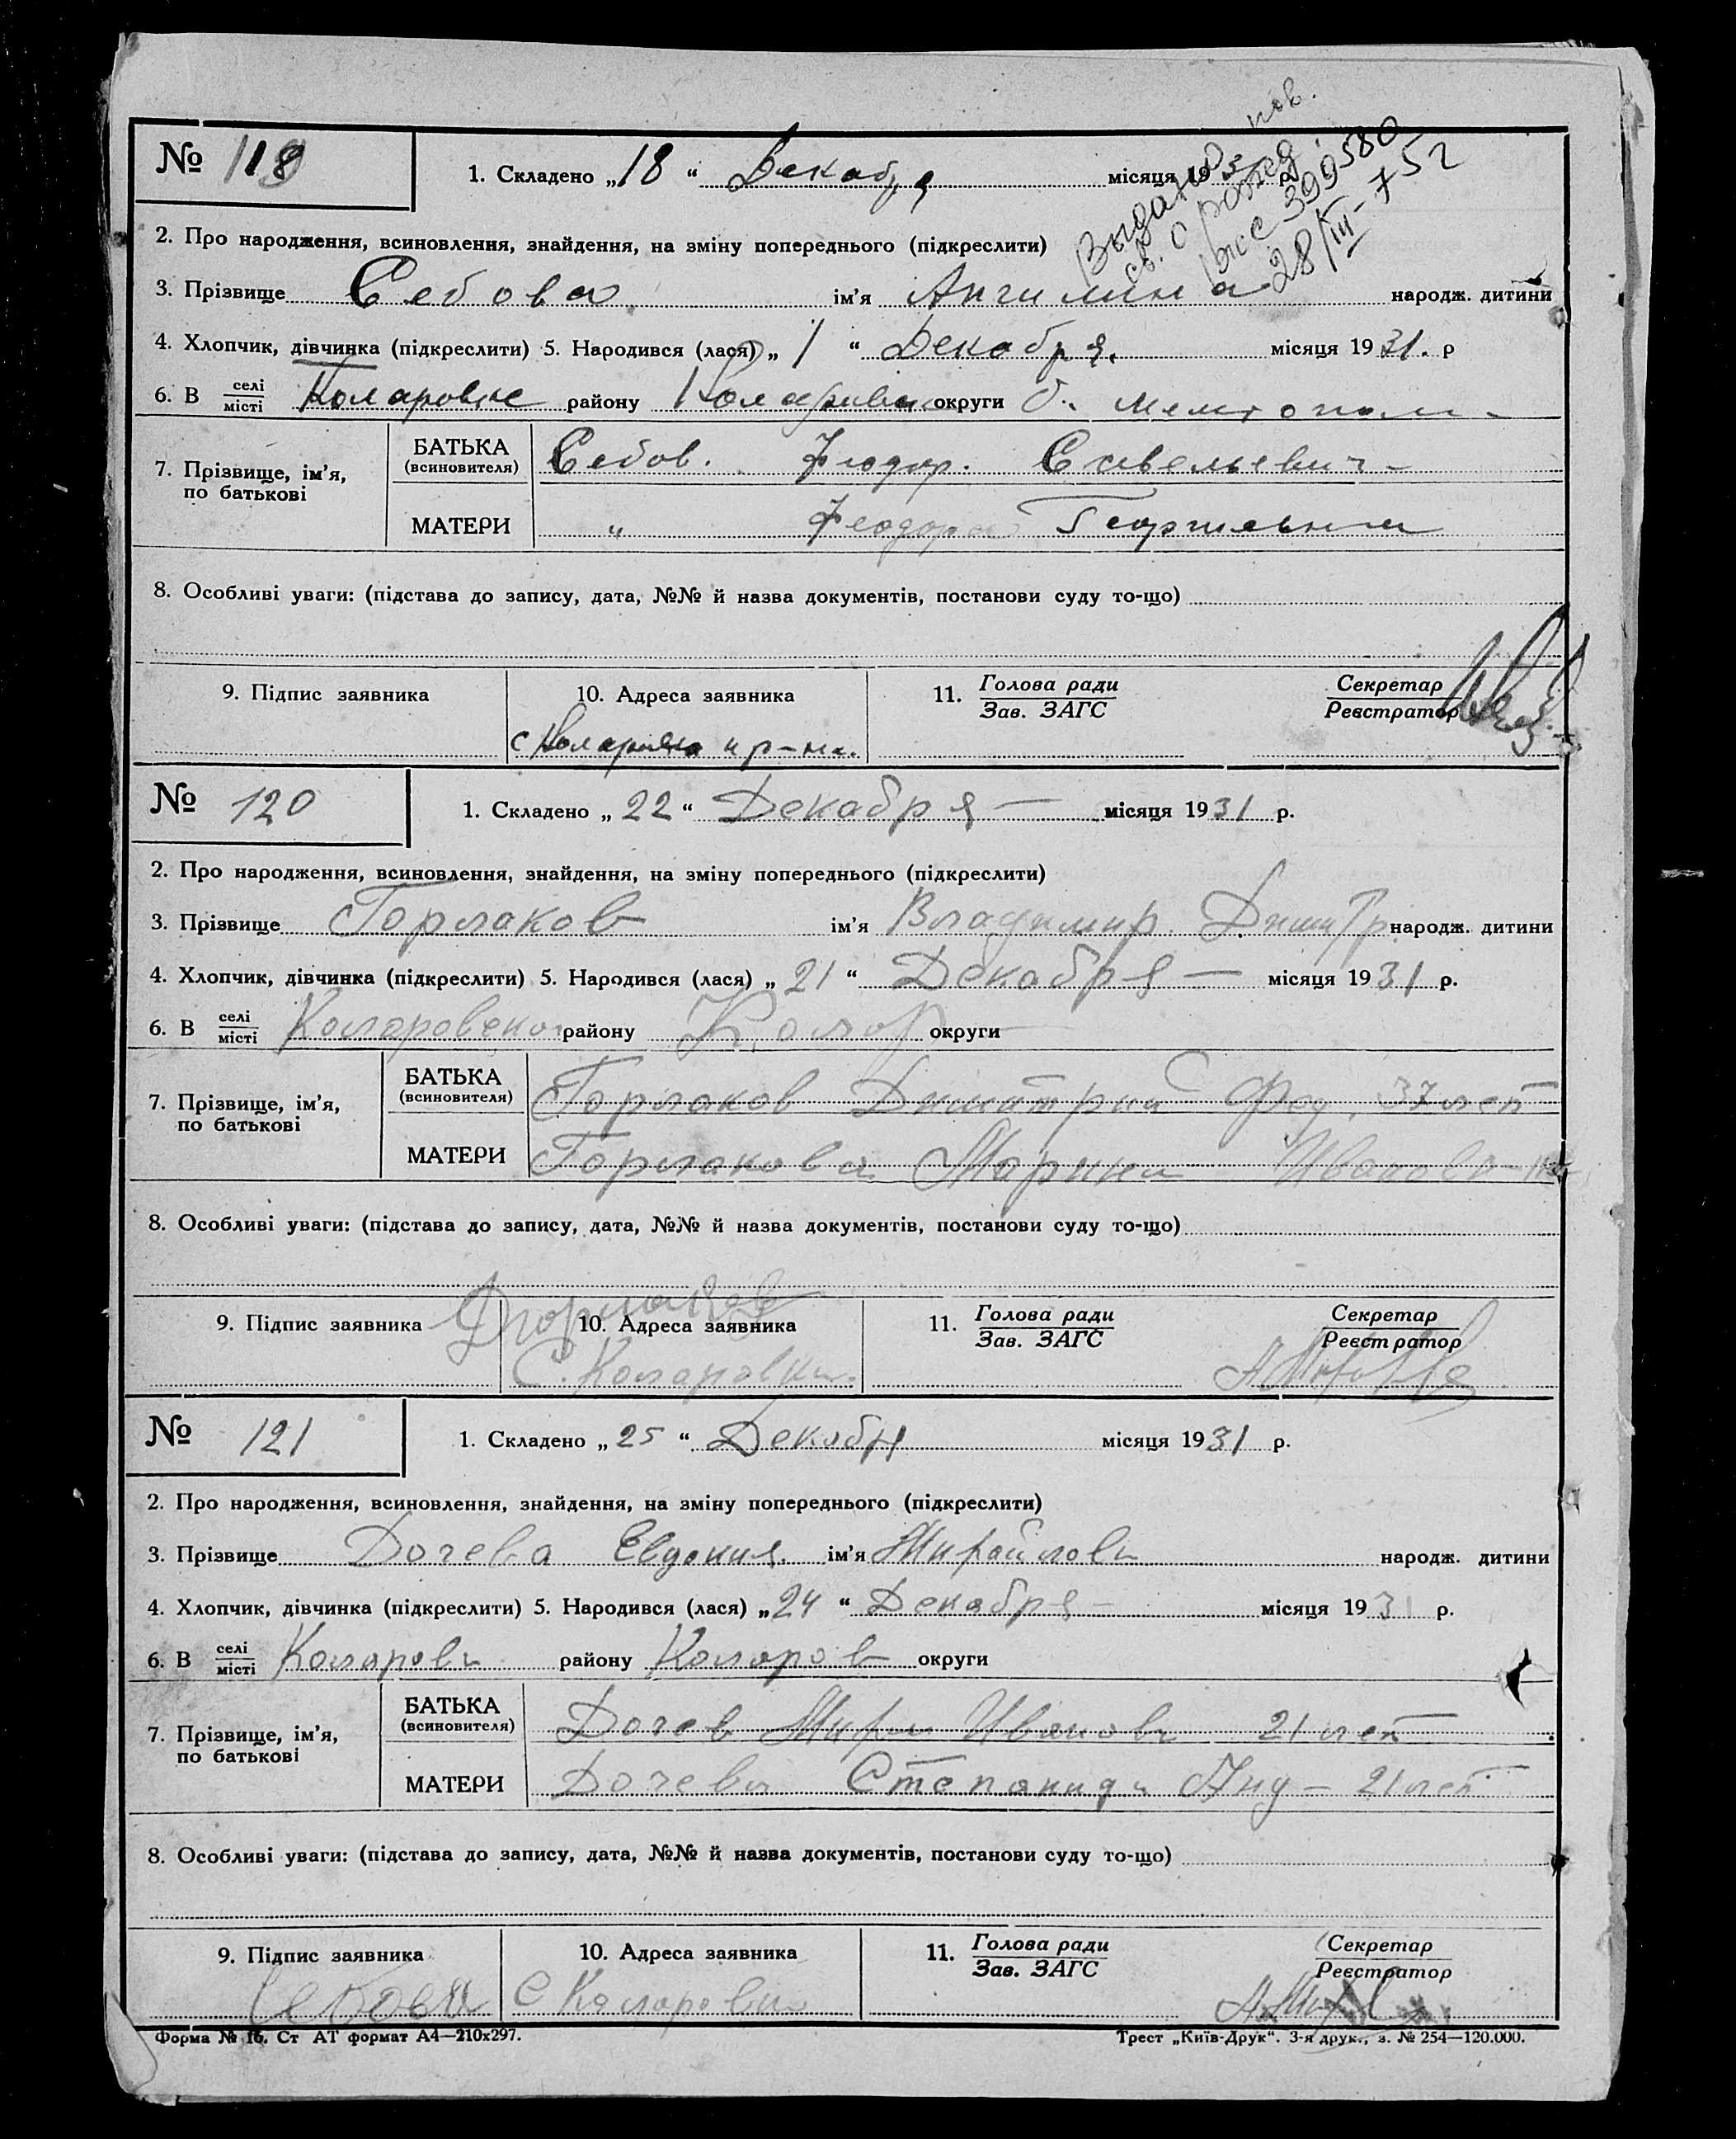 № 118 1. Складено „18“ Декабря місяця 19 р.
Выдано пов.
св. о рожд.
399580
28/III-52
2. Про народження, всиновлення, знайдення, на зміну попереднього (підкреслити)
3. Прізвище Себова ім'я Ангилина народж. дитини
4. Хлопчик, дівчинка (підкреслити) 5. Народився (лася) „1“ Декабря місяця 1931. р
6. В селі/місті Коларовке району Коларивка округи б. Мелитопол
7. Прізвище, ім'я, по батькові
БАТЬКА (всиновителя) Себов. Феодор. Савельевич
МАТЕРИ " Феодора Георгиевна
8. Особливі уваги: (підстава до запису, дата, №№ й назва документів, постанови суду то-що)
9. Підпис заявника 10. Адреса заявника 11. Голова ради/Зав. ЗАГС Секретар/Реєстратор
с Коларовка и р-на.
№ 120 1. Складено „22“ Декабря місяця 1931 р.
2. Про народження, всиновлення, знайдення, на зміну попереднього (підкреслити)
3. Прізвище Горлаков ім'я Владимир Димитр. народж. дитини
4. Хлопчик, дівчинка (підкреслити) 5. Народився (лася) „21“ Декабря — місяця 1931 р.
6. В селі/місті Коларовско району Колар округи
7. Прізвище, ім'я, по батькові
БАТЬКА (всиновителя) Горлаков Димитрий Фед. 37 лет
МАТЕРИ Горлакова Марина Ивановна
8. Особливі уваги: (підстава до запису, дата, №№ й назва документів, постанови суду то-що)
9. Підпис заявника 10. Адреса заявника 11. Голова ради/Зав. ЗАГС Секретар/Реєстратор
Дгорлаков С. Коларовка.
№ 121 1. Складено „25“ Декабря місяця 1931 р.
2. Про народження, всиновлення, знайдення, на зміну попереднього (підкреслити)
3. Прізвище Дочева Евдокия. ім'я Михайлов народж. дитини
4. Хлопчик, дівчинка (підкреслити) 5. Народився (лася) „24“ Декабря — місяця 1931 р.
6. В селі/місті Коларовк району Коларов округи
7. Прізвище, ім'я, по батькові
БАТЬКА (всиновителя) Дочев Мих Иванов 21 лет
МАТЕРИ Дочева Степанида Анд — 21 лет
8. Особливі уваги: (підстава до запису, дата, №№ й назва документів, постанови суду то-що)
9. Підпис заявника 10. Адреса заявника 11. Голова ради/Зав. ЗАГС Секретар/Реєстратор
Себова С Коларовка
Форма № 16. Ст АТ формат А4—210х297. Трест „Київ-Друк“. 3-я друк., з. № 254—120.000.